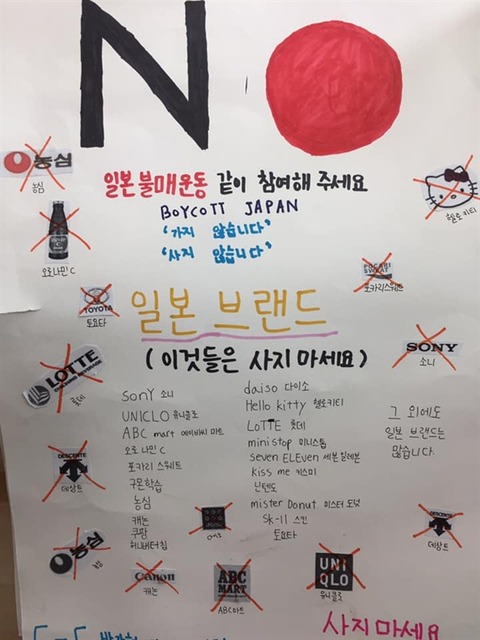 NO
일본불매운동 같이 참여해 주세요
BOYCOTT JAPAN
'가지 않습니다'
'사지 않습니다'
농심
농심
오로나민C
헬로키티
POCARI SWEAT
포카리스웨트
TOYOTA
토요타
일본 브랜드
(이것들은 사지 마세요)
SONY
소니
LOTTE
롯데
DESCENTE
데상트
sony 소니
UNICLO 유니클로
ABC mart 에이비씨 마트
오로나민C
포카리 스웨트
구몬학습
농심
캐논
쿠팡
허니버터칩
daiso 다이소
Hello kitty 헬로키티
LoTTE 롯데
ministop 미니스톱
seven ELEven 세븐 일레븐
kiss me 키스미
닌텐도
mister Donut 미스터 도넛
SK-II 스킨
토요타
그 외에도
일본 브랜드는
많습니다.
DESCENTE
데상트
농심
농심
Canon
캐논
ABC MART
ABC마트
UNI QLO
유니클로
사지마세요